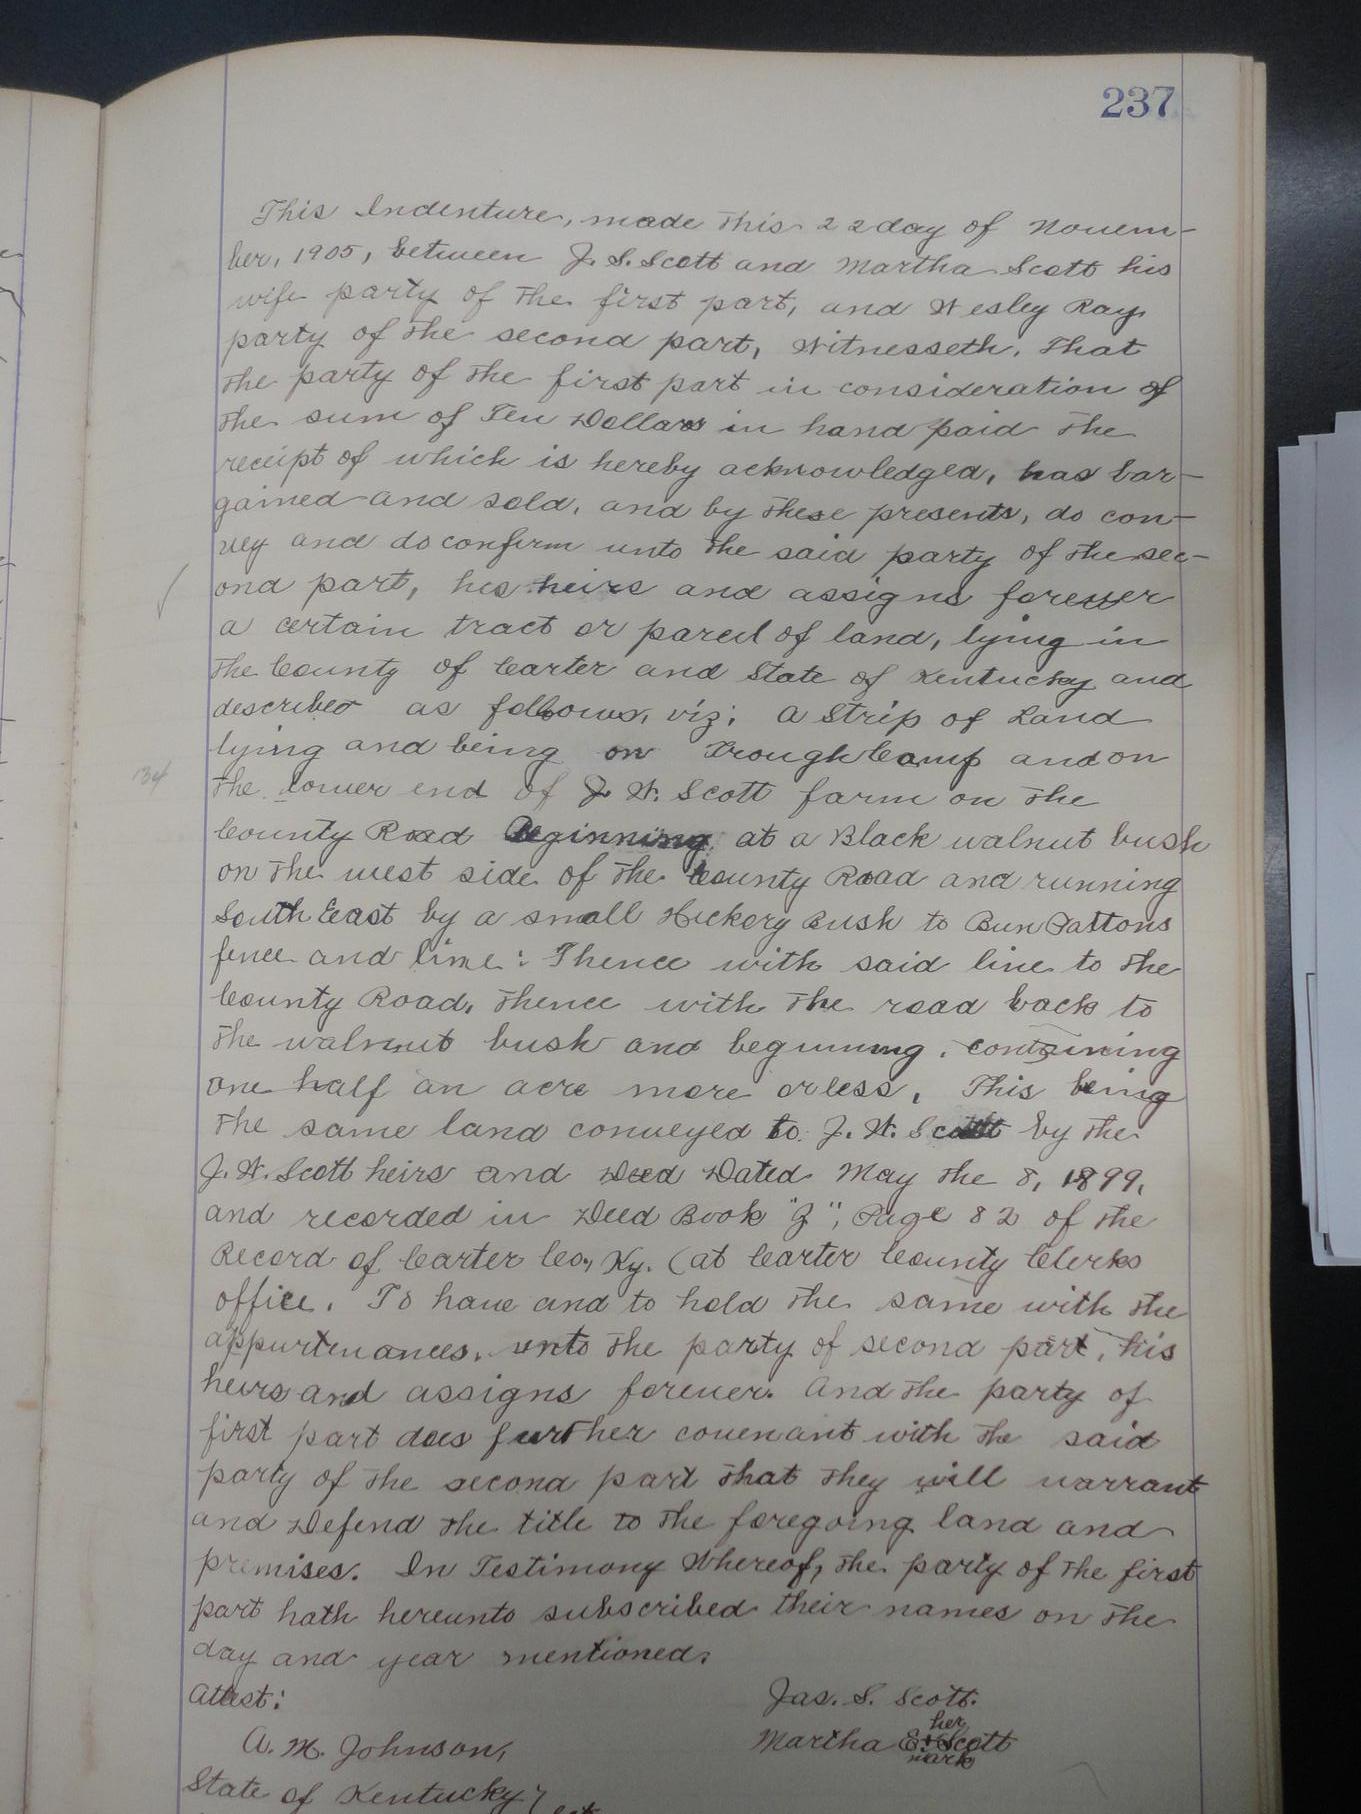 237
This Indenture, made this 22 day of Novem-
ber, 1905, between J. S. Scott and Martha Scott his
wife party of the first part, and Wesley Ray
party of the second part, Witnesseth, That
the party of the first part in consideration of
the sum of Ten Dollars in hand paid the
receipt of which is hereby acknowledged, has bar-
gained and sold, and by these presents, do con-
vey and do confirm unto the said party of the sec-
ond part, his heirs and assigns forever
a certain tract or parcel of land, lying in
the County of Carter and State of Kentucky and
described as follows, viz; A Strip of Land
lying and being on Trough Camp and on
the lower end of J. W. Scott farm on the
County Road Beginning at a Black walnut bush
on the west side of the County Road and running
South East by a small Hickory Bush to Bun Pattons
fence and line: Thence with said line to the
County Road, thence with the road back to
the walnut bush and beginning, containing
one half an acre more or less, This being
the same land conveyed to J. W. Scott by the
J. W. Scott heirs and Deed Dated May the 8, 1899,
and recorded in Deed Book "J", Page 82 of the
Record of Carter Co., Ky. (at Carter County Clerks
office. To have and to hold the same with the
appurtenances, unto the party of second part, his
heirs and assigns forever. And the party of
first part does further covenant with the said
party of the second part that they will warrant
and Defend the title to the foregoing land and
premises. In Testimony Whereof, the party of the first
part hath hereunto subscribed their names on the
day and year mentioned.
Attest: Jas. S. Scott.
her
A. M. Johnson, Martha E. + Scott
mark
State of Kentucky